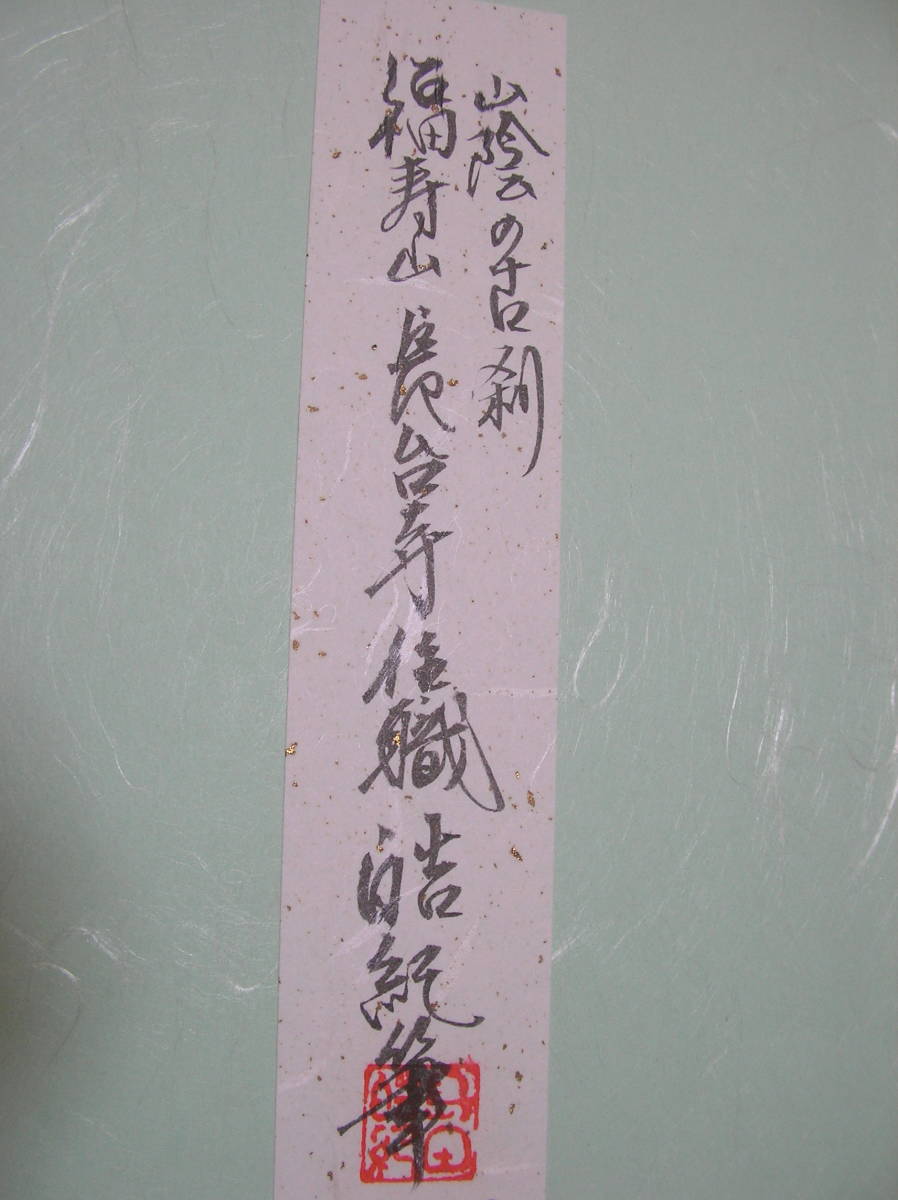 山陰の古刹
福寿山 長台寺 住職 皓紀筆